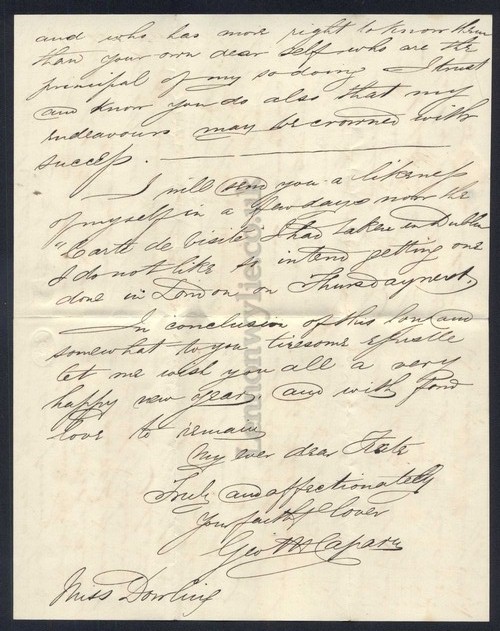 and who has more right to know them
than your own dear self who are the
principal of my so doing I trust
and know you do also that my
endeavours may be crowned with
success.
I will send you a likeness
of myself in a few days now the
"Carte de Visite" I had taken in Dublin
I do not like so intend getting one
done in London on Thursday next.
In conclusion of this long and
somewhat to you tiresome epistle
let me wish you all a very
happy new year, and with fond
love to remain
My ever dear
Truly and affectionately
Your faithful lover
Geo
Miss Dowling